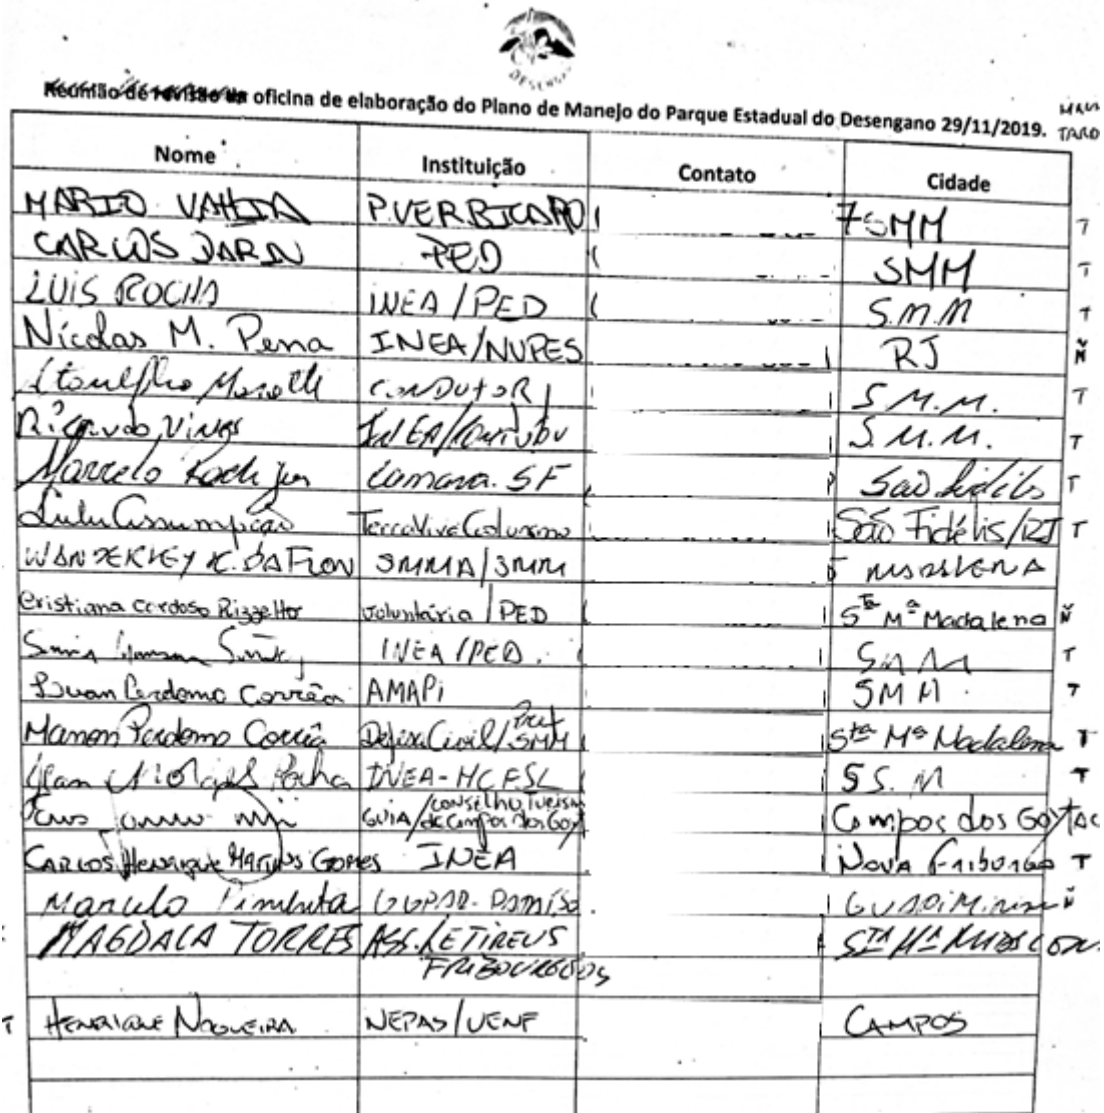 DESENGANO
Reunião de revisão da oficina de elaboração do Plano de Manejo do Parque Estadual do Desengano 29/11/2019.
Nome Instituição Contato Cidade
MARIO VAHIA P.VERBICARO SMM T
CARLOS DARIN PED SMM T
LUIS ROCHA INEA/PED S.M.M T
Nícolas M. Pena INEA/NUPES RJ Ñ
CONDUTOR S.M.M. T
Ricardo INEA S.M.M. T
Marcelo Camara. SF São Fidélis T
Lulu Assumpção TerraViva São Fidélis/RJ T
SMMA/SMM MADALENA
Cristiana Cardoso Rizzetto voluntária/PED Sta Mª Madalena Ñ
INEA/PED. SMM T
Luan Perdomo Corrêa AMAPi SMM. T
Manon Perdomo Corrêa Defesa Civil/Pref SMM Sta Mª Madalena T
Jean Rocha INEA- S.M T
GUIA/Conselho Turism de Campos dos Goyt Campos dos Goytac
CARLOS HENRIQUE MARTINS GOMES INEA Nova Friburgo T
Marcelo Pimenta Ñ
MAGDALA TORRES ASS. STA Mª
T HENRIQUE NOGUEIRA NEPAS/UENF CAMPOS